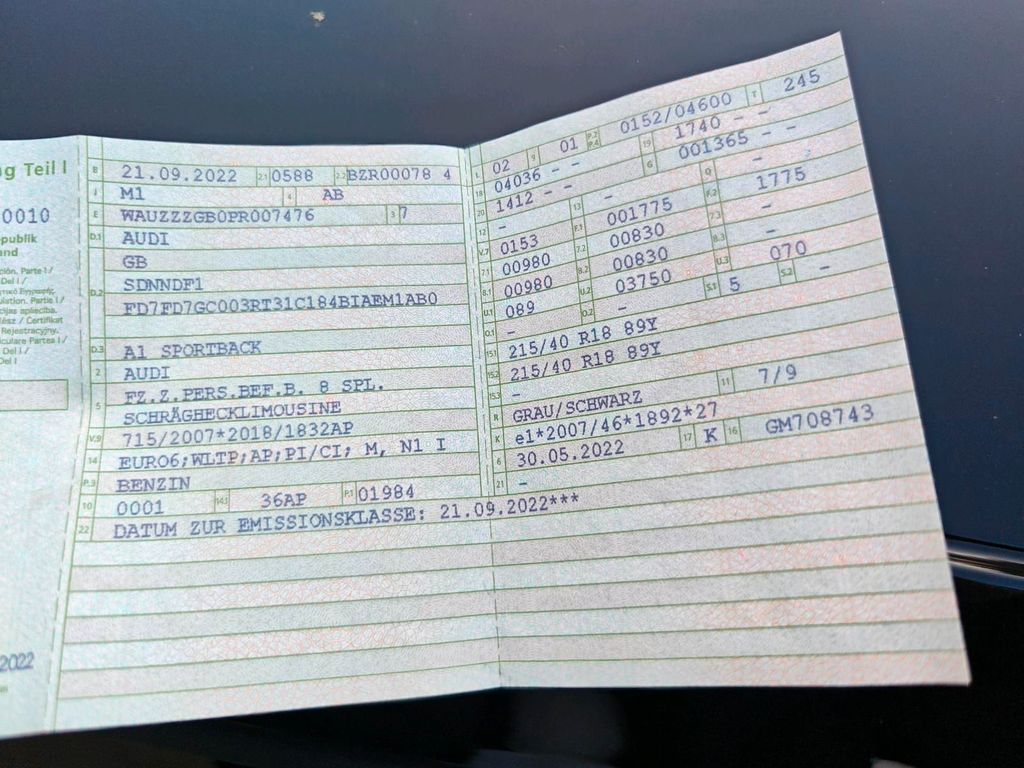 g Teil I
0010
publik
and
ción. Parte I /
Del I /
ulation. Partie I /
cijas apliecība.
lész / Certifikat
Rejestracyjny.
iculare Partea I /
Del I /
Del I
2022
B 21.09.2022 2.1 0588 2.2 BZR00078 4
J M1 4 AB
E WAUZZZGB0PR007476 3 7
D.1 AUDI
GB
D.2 SDNNDF1
FD7FD7GC003RT31C184BIAEM1AB0
D.3 A1 SPORTBACK
2 AUDI
5 FZ.Z.PERS.BEF.B. 8 SPL.
SCHRÄGHECKLIMOUSINE
V.9 715/2007*2018/1832AP
14 EURO6;WLTP;AP;PI/CI; M, N1 I
P.3 BENZIN
10 0001 14.1 36AP P.1 01984
22 DATUM ZUR EMISSIONSKLASSE: 21.09.2022***
L 02 9 01 P.2 P.4 0152/04600 T 245
18 04036 - 19 1740 - -
20 1412 - - G 001365 - -
12 - 13 - Q -
V.7 0153 F.1 001775 F.2 1775
7.1 00980 7.2 00830 7.3 -
8.1 00980 8.2 00830 8.3 -
U.1 089 U.2 03750 U.3 070
O.1 - O.2 - S.1 5 S.2 -
15.1 215/40 R18 89Y
15.2 215/40 R18 89Y
15.3 -
R GRAU/SCHWARZ 11 7/9
K e1*2007/46*1892*27
6 30.05.2022 17 K 16 GM708743
21 -